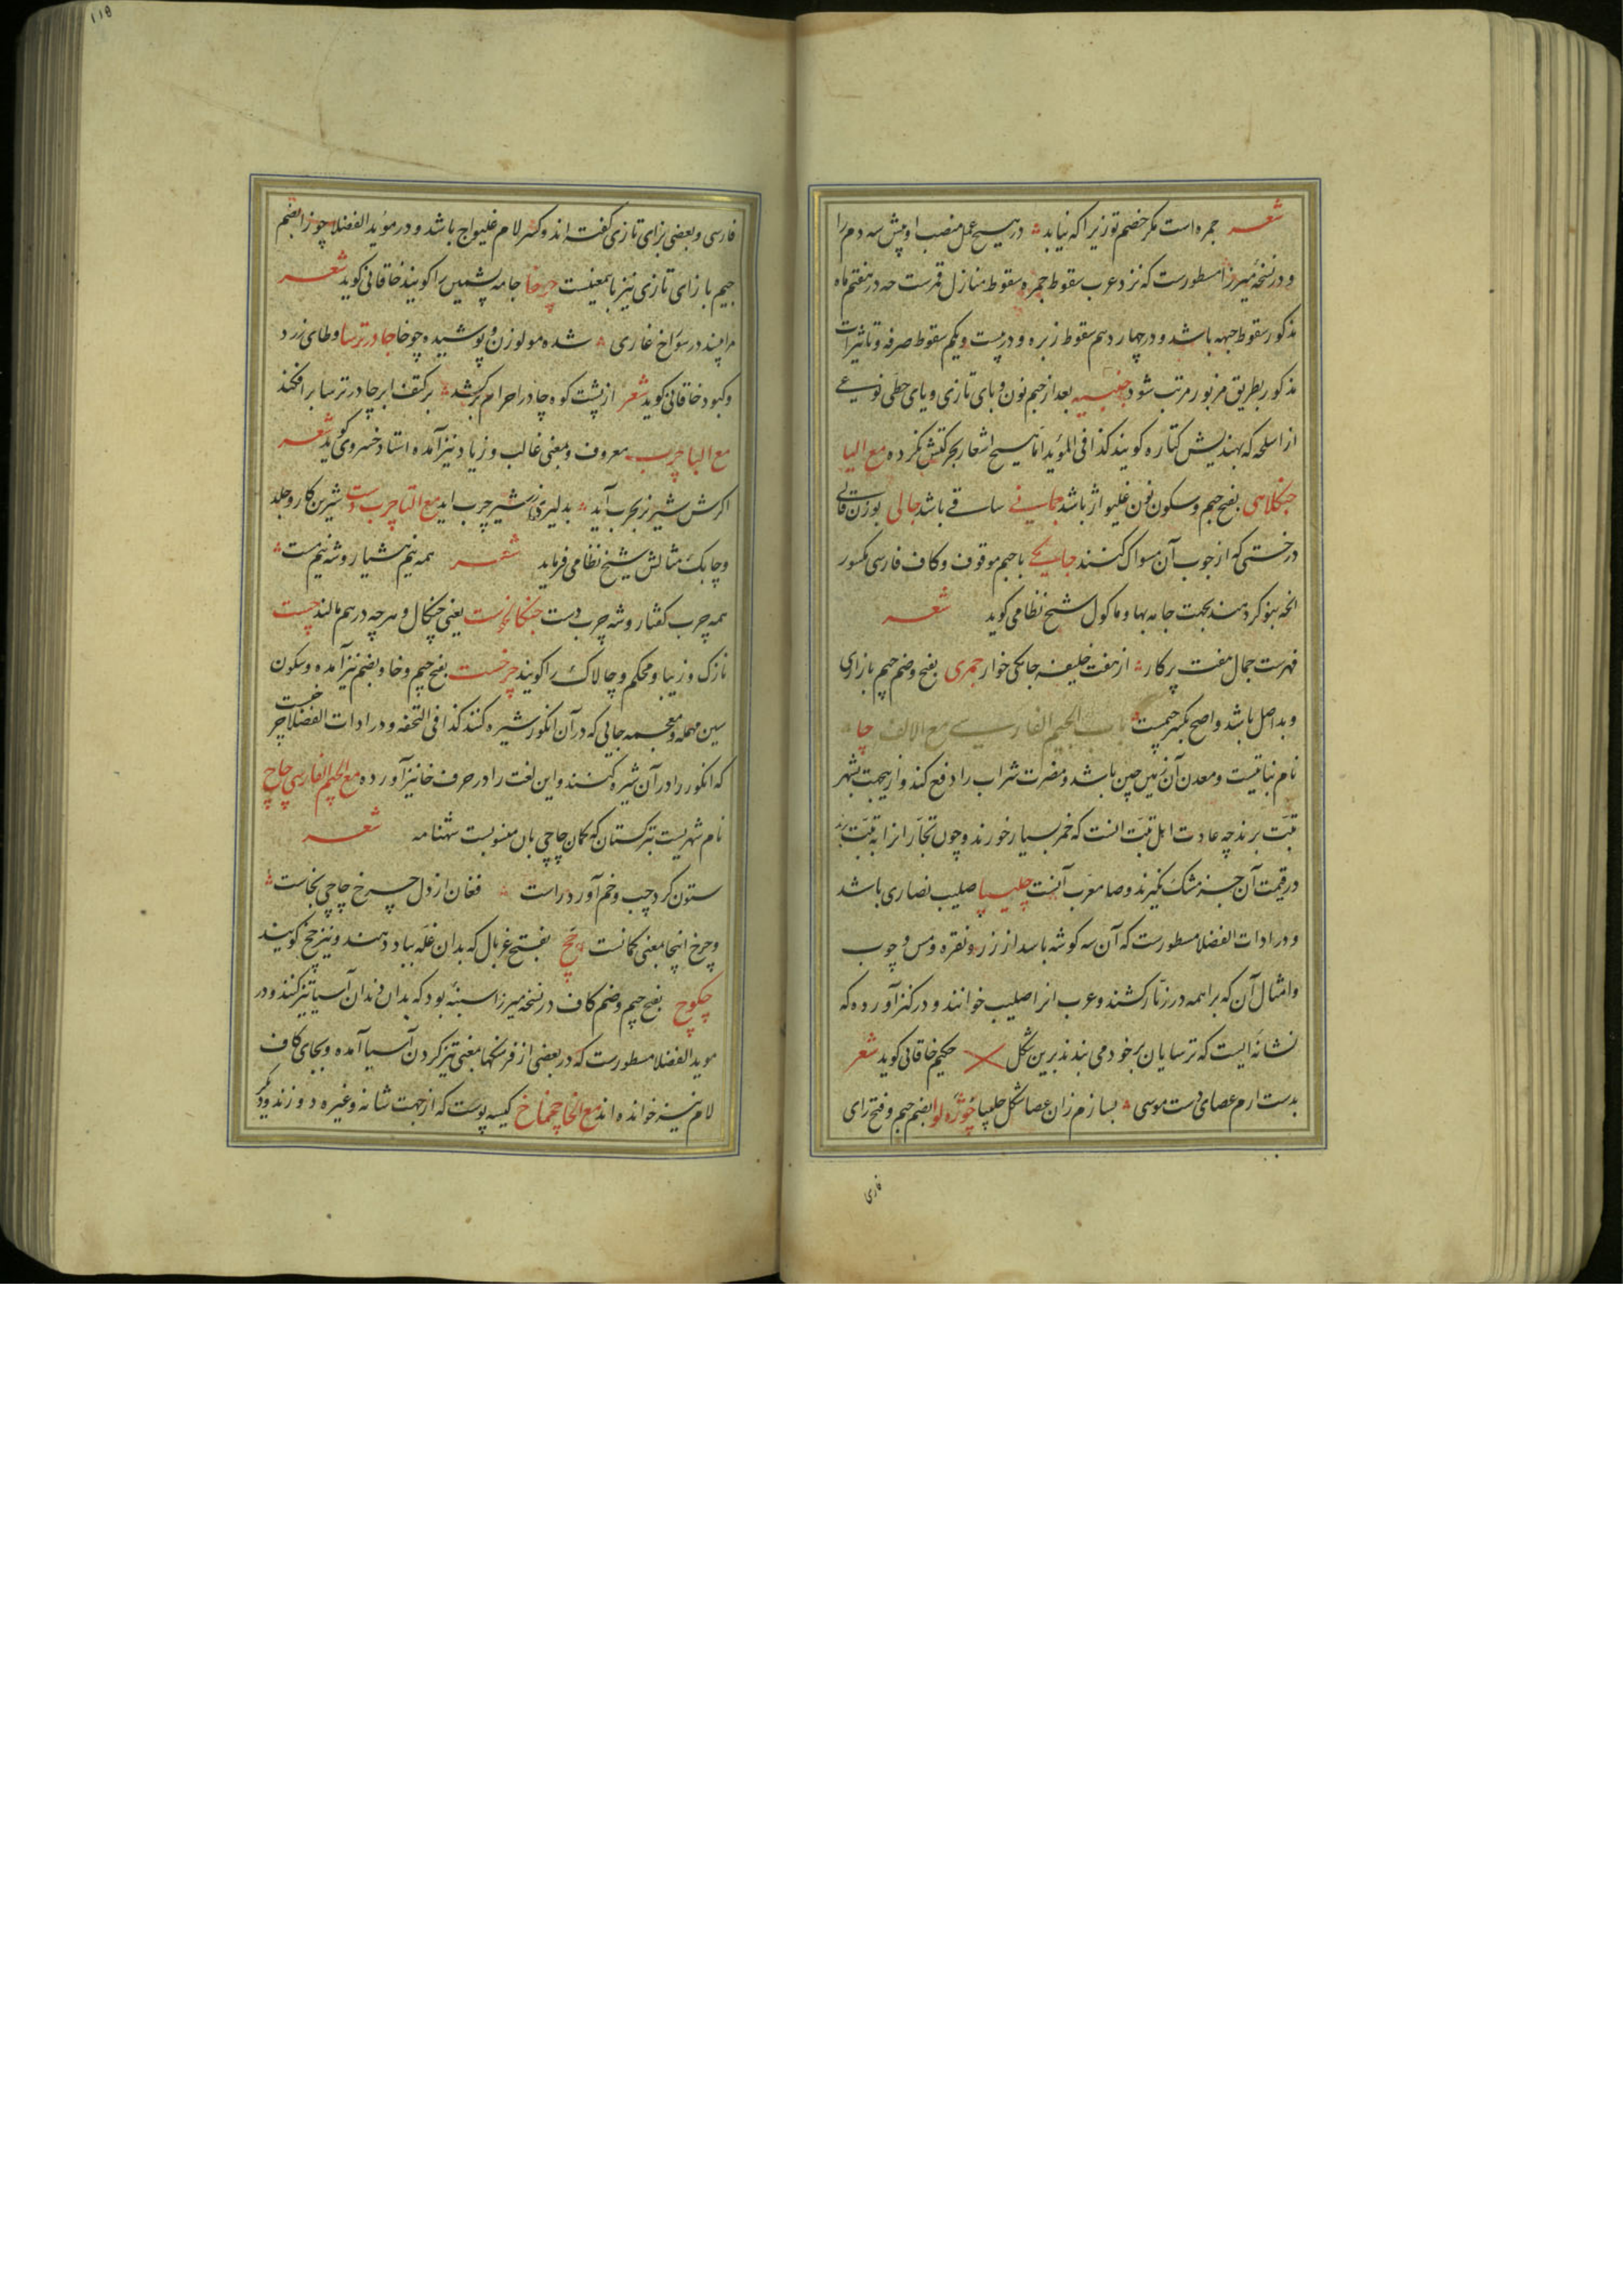 شعر جمره است مکر خصم تو زیرا که نیابد در هیچ عمل منصب او پیش سه دم را
و در نسخه میرزا مسطورست که نزد عرب سقوط جمره سقوط منازل قمرست چه در هفتم ماه
مذکور سقوط جبهه باشد و در چهاردهم سقوط زبره و در بیست و یکم سقوط صرفه و تاثیرات
مذکور بطریق مزبور مرتب شود جنبیه بعد از جیم نون و بای تازی و یای حطی نوعی
از اسلحه که بهندیش کتاره کویند کذا فی المؤید اما هیچ اشعار بحرکتش نکرده مع الیا
جنکلاهی بفتح جیم و سکون نون غلیواژ باشد جمانی ساقی باشد جالی بوزن قالی
درختی که از چوب آن مسواک کنند جامکی با جیم موقوف و کاف فارسی مکسور
انچه بنوکر دهند بجهت جامه بها و ماکول شیخ نظامی کوید شعر
فهرست جمال هفت پرکار از هفت خلیفه جامکی خوار جمری بفتح و ضم جیم بازاری
و بد اصل باشد و اصح بکسر جیمست باب الجیم الفارسی مع الالف چا
نام نباتیست و معدن آن زمین چین باشد و مضرت شراب را دفع کند و ازینجهت بشهر
تبت برند چه عادت اهل تبت انست که خمر بسیار خورند و چون تجار انرا به تبت برند
در قیمت آن جز مشک نکیرند و صا معرب آنست چلیپا صلیب نصاری باشد
و در ادات الفضلا مسطورست که آن سه کوشه باسد از زر و نقره و مس و چوب
و امثال آن که براهمه در زنار کشند و عرب انرا صلیب خوانند و در کنز آورده که
نشانه ایست که ترسایان بر خود می بندند برین شکل حکیم خاقانی کوید شعر
بدست ارم عصای دست موسی بسازم زان عصا شکل چلیپا چوژه لوا بضم جیم و فتح زای
فارسی
فارسی و بعضی بزای تازی کفته اند و کسر لام غلیواج باشد و در مؤید الفضلا چوزا بضم
جیم با زای تازی نیز باینمعنیست چوخا جامه پشمین را کویند خاقانی کوید شعر
مرا بینند در سوراخ غاری شده مولوزن و پوشیده چوخا چادر ترسا وطای زرد
و کبود خاقانی کوید شعر از پشت کوه چادر احرام برکشد بر کتف ابر چادر ترسا برافکند
مع البا چرب معروف و بمعنی غالب و زیاد نیز آمده استاد خسروی کوید شعر
اکرش شیر نر بحرب آید بدلیری ز شیر چرب اید مع التا چرب دست شیرین کار و جلد
و چابک مثالش شیخ نظامی فرماید شعر همه نیم هشیار و شه نیم مست
همه چرب کفتار و شه چرب دست یعنی چنکال و هرچه در هم مالند چست
نازک و زیبا و محکم و چالاک را کویند چرخست بفتح جیم و خا و بضم نیز آمده و سکون
سین مهمله و معجمه جایی که در آن انکور شیره کنند کذا فی التحفه و در ادات الفضلا چرخست
که انکور را در آن شیره کنند و این لغت را در حرف خا نیز آورده مع الجیم الفارسی چاچ
نام شهریست بترکستان که کمان چاچی بان منسوبست شهنامه شعر
ستون کرد چپ و خم آورد راست فغان از دل چرخ چاچی بخاست
و چرخ اینجا بمعنی کمانست چچ بفتح غربال که بدان غله بباد دهند و نیز چخ کویند
چکوچ بفتح جیم و ضم کاف در نسخه میرزا بود که بدان دندان آسیا تیز کنند و در
موید الفضلا مسطورست که در بعضی از فرهنکها بمعنی تیز کردن آسیا آمده و بجای کاف
لام نیز خوانده اند مع الخا چمناخ کیسه پوست که از جهت شانه و غیره دوزند و دیکر